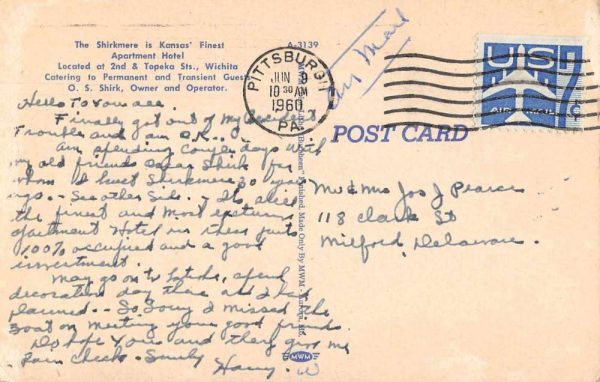 The Shirkmere is Kansas' Finest
Apartment Hotel
Located at 2nd & Topeka Sts., Wichita
Catering to Permanent and Transient Guests
O. S. Shirk, Owner and Operator.
A-3139
Air Mail
PITTSBURGH
JUN 9
10 30 AM
1960
PA.
US
7¢
AIR MAIL
POST CARD
Hello To you all.
Finally got out of my accident
Trouble and am O.K..
Am spending couple days with
my old friend Oscar Shirk for
whom I built Shirkmere 30 years
ago. - See other side. - Its still
the finest and most
apartment Hotel in these parts
100% occupied and a good
investment.
May go on to, spend
decoration day there as I had
planned - So Sorry I missed the
boat on meeting your good friends
Do hope you and they give me
Rain check. - Harry. W
Mr & Mrs Jos J Pearce
118 Clark St
Milford, Delaware.
Finished. Made Only By MWM
MWM